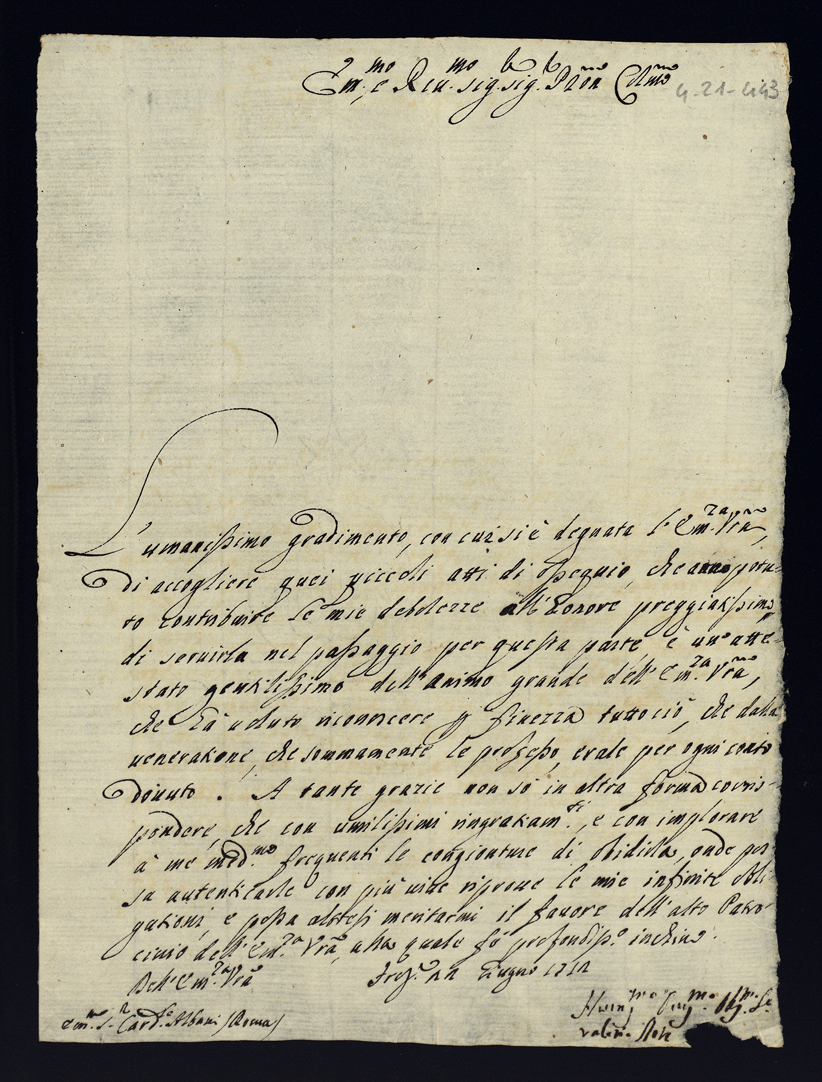 Em.mo e Reu.mo sig. sig. Pron Colmo
4-21-443
L'umanissimo gradimento, con cui si è degnata l'Em.za Vrã,
di accogliere quei piccoli atti di ossequio, che anno potu-
to contribuire le mie debolezze all'honore preggiatissimo
di seruirla nel passaggio per questa parte, è un'atte-
stato gentilissimo dell'animo grande dell'Em.za Vrã,
che hà uoluto riconoscere p finezza tutto ciò, che dalla
uenerazione, che sommamente le professo, erale per ogni conto
douuto. A tante grazie non sò in altra forma corris-
pondere, che con umilissimi ringraziam.ti, e con implorare
à me med.mo frequenti le congionture di obidirla, onde pos-
sa autenticarle con più uiue riproue le mie infinite obli-
gationi, e possa altresi meritarmi il fauore dell'alto Patro-
cinio dell'Em.za Vrã, alla quale fò profondiss.o inchino.
Dell'Em.za Vrã
giugno 1712
Em.mo S.r Card.le Albani (Roma)